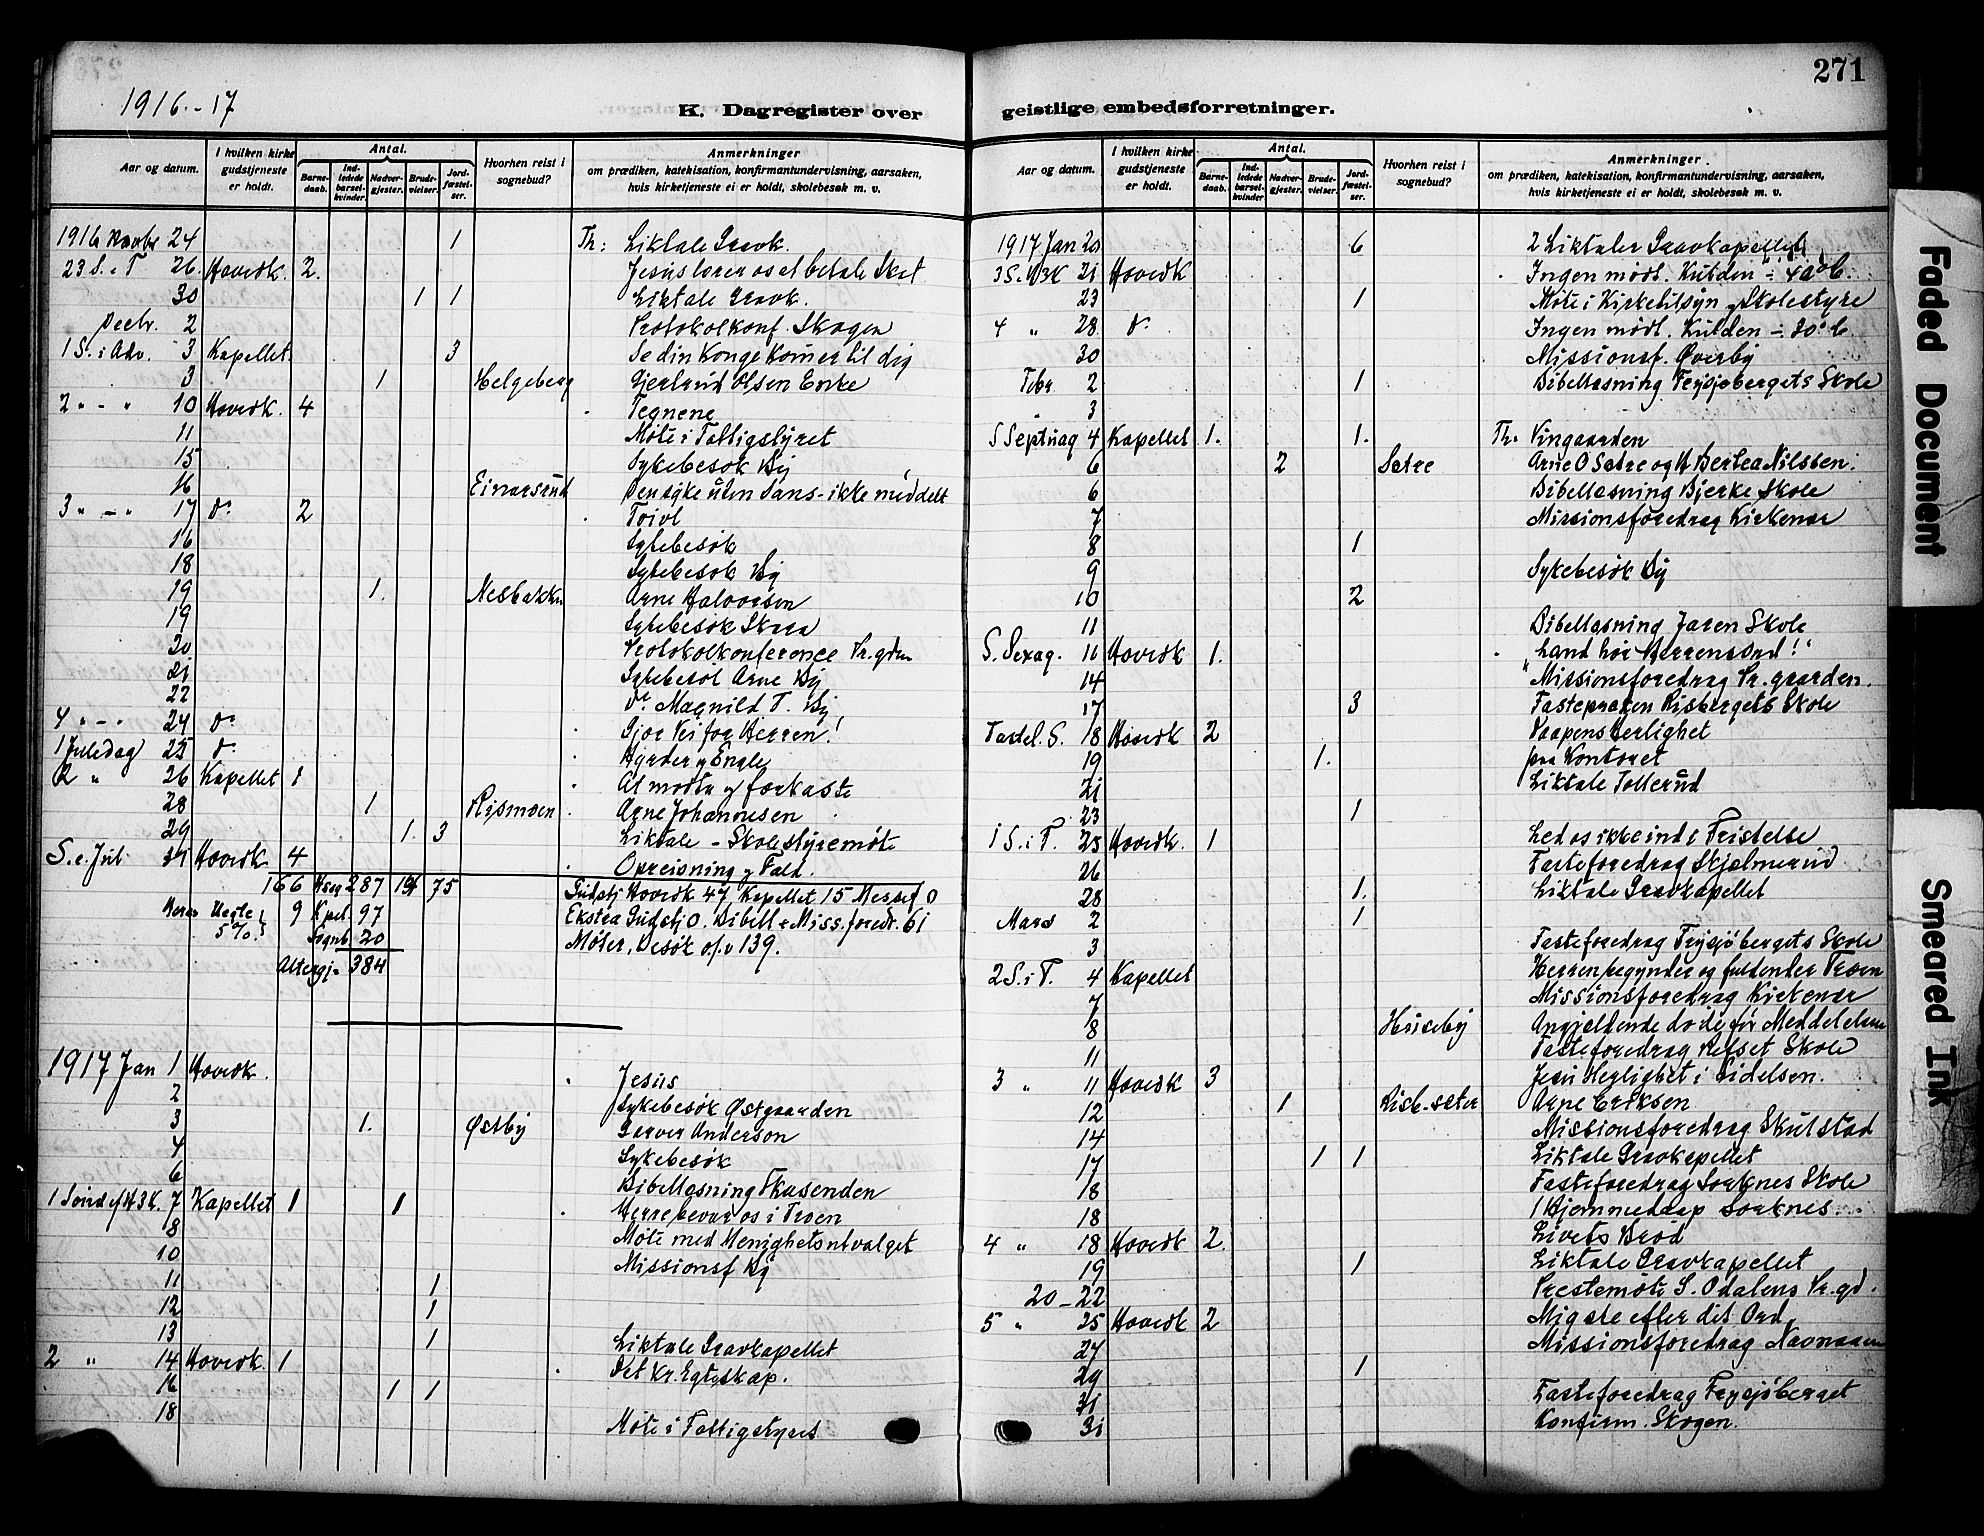 271
1916.-17
K. Dagregister over geistlige embedsforretninger.
Aar og datum. I hvilken kirke gudstjeneste er holdt. Antal. Barnedaab. Indledede barselkvinder. Nadvergjester. Brudevielser. Jordfæstelser. Hvorhen reist i sognebud? Anmerkninger om prædiken, katekisation, konfirmantundervisning, aarsaken, hvis kirketjeneste ei er holdt, skolebesøk m. v.
1916 Novbr 24 1 Th: Liktale Gravk.
23 S. e T 26 Hovedk 2 Jesus lærer os at betale Skat
30 1 1 Liktale Gravk.
Decbr. 2 Protokolkonf. Skogen
1 S. i Adv. 3 Kapellet 3 Se din Konge kommer til dig
3 1 Helgeberg Gjertrud Olsen Enke
2 " - " 10 Hovedk. 4 Tegnene
11 Møte i Fattigstyret
15 Sykebesøk By
16 Einarsrud Den syke uten Sans - ikke meddelt
3 " - " 17 do 2 Tvivl
16 Sykebesøk
18 Sykebesøk By
19 1. Nesbakken Arne Halvorsen
19 Sykebesøk Skara
20 Protokolkonference Pr.gdn
21 Sykebesøk Arne By
22 do Magnild T. By
4 " - " 24 do Gjør Vei for Herren!
1 Juledag 25 do Hyrder og Engle
2 " 26 Kapellet 1 At motta og forkaste
28 1 Rismoen Arne Johannesen
29 1. 3 Liktale - Skolestyremøte
S. e. Jul 31 Hovedk 4 Opreisning og Fald.
166 287 19 75 Gudstj Hovedk 47 Kapellet 15 Messef 0
9 Kpel 97 Ekstra Gudstj 0. Bibell + Miss.foredr. 61
5%. Sognb 20 Møter, Besøk o.s.v 139.
Altergj = 384
1917 Jan 1 Hovedk. Jesus
2 Sykebesøk Østgaarden
3 1. Østby Garver Anderson
4 Sykebesøk
6 Bibellæsning
1 Sønd e/H3K. 7 Kapellet 1 1 Herre bevar os i Troen
8 Møte med Menighetsutvalget
10 Missionsf By
11 1
12 1
13 1 Liktale Gravkapellet
2 " 14 Hovedk. 1 Det kr. Egteskap.
16 1 1
18 Møte i Fattigstyret
Aar og datum. I hvilken kirke gudstjeneste er holdt. Antal. Barnedaab. Indledede barselkvinder Nadvergjester. Brudevielser. Jordfæstelser. Hvorhen reist i sognebud? Anmerkninger. om prædiken, katekisation, konfirmantundervisning, aarsaken, hvis kirketjeneste ei er holdt, skolebesøk m. v.
1917 Jan 20 6 2 Liktaler Gravkapellet
3 S. e/H3K 21 Hovedk Ingen mødt. Kulden ÷ 40° C.
23 1 Møte i Kirketilsyn og Skolestyre
4 " 28 do Ingen mødt. Kulden ÷ 30° C
30 Missionsf. Øverby
Febr 2 1 Bibellæsning Frysjøbergets Skole
" 3
S Septuag 4 Kapellet 1. 1. Th: Vingaarden
6 2 Sætre Arne O Sætre og H Bertea Nilssen.
6 Bibellæsning Bjerke Skole
7 Missionsforedrag Kirkenær
8 1
9 Sykebesøk By
10 2
11 Bibellæsning Jaren Skole
S. Sexag. 11 Hovedk 1. "Land hør Herrens ord!"
14 Missionsforedrag Pr.gaarden.
17 3 Fastepræken Risbergets Skole
Fastel. S. 18 Hovedk 2 Vaapens Herlighet
19 1. paa Kontoret
21 Liktale Tollerud
23 1
1 S. i F. 25 Hovedk. 1 Led os ikke ind i Fristelse
26 Fasteforedrag Skjelmerud
28 1. Liktale Gravkapellet
Mars 2 1
3 Fasteforedrag Frysjøbergets Skole
2 S. i F. 4 Kapellet Herren begynder og fuldender Troen
7 Missionsforedrag Kirkenær
8 Huseby Angjeldende døde før Meddelelsen
11 Fasteforedrag Refset Skole
3 " 11 Hovedk 3 Jesu Herlighet i Lidelsen.
12 1 Risb-sæter Arne Eriksen
14 Missionsforedrag Skulstad
17 1 1 Liktale Gravkapellet
18 Fasteforedrag Sorknes Skole
18 1 Hjemmedaap Sorknes.
4 " 18 Hovedk 2. Livets Brød
19 1 Liktale Gravkapellet
20-22 Prestemøte S. Odalens Pr.gd.
5 " 25 Hovedk 2 Mig ske efter dit Ord
27 Missionsforedrag Navnaaen
29 1
31 Fasteforedrag Frysjøberget
31 Konfirm. Skogen.
Faded Document
Smeared Ink